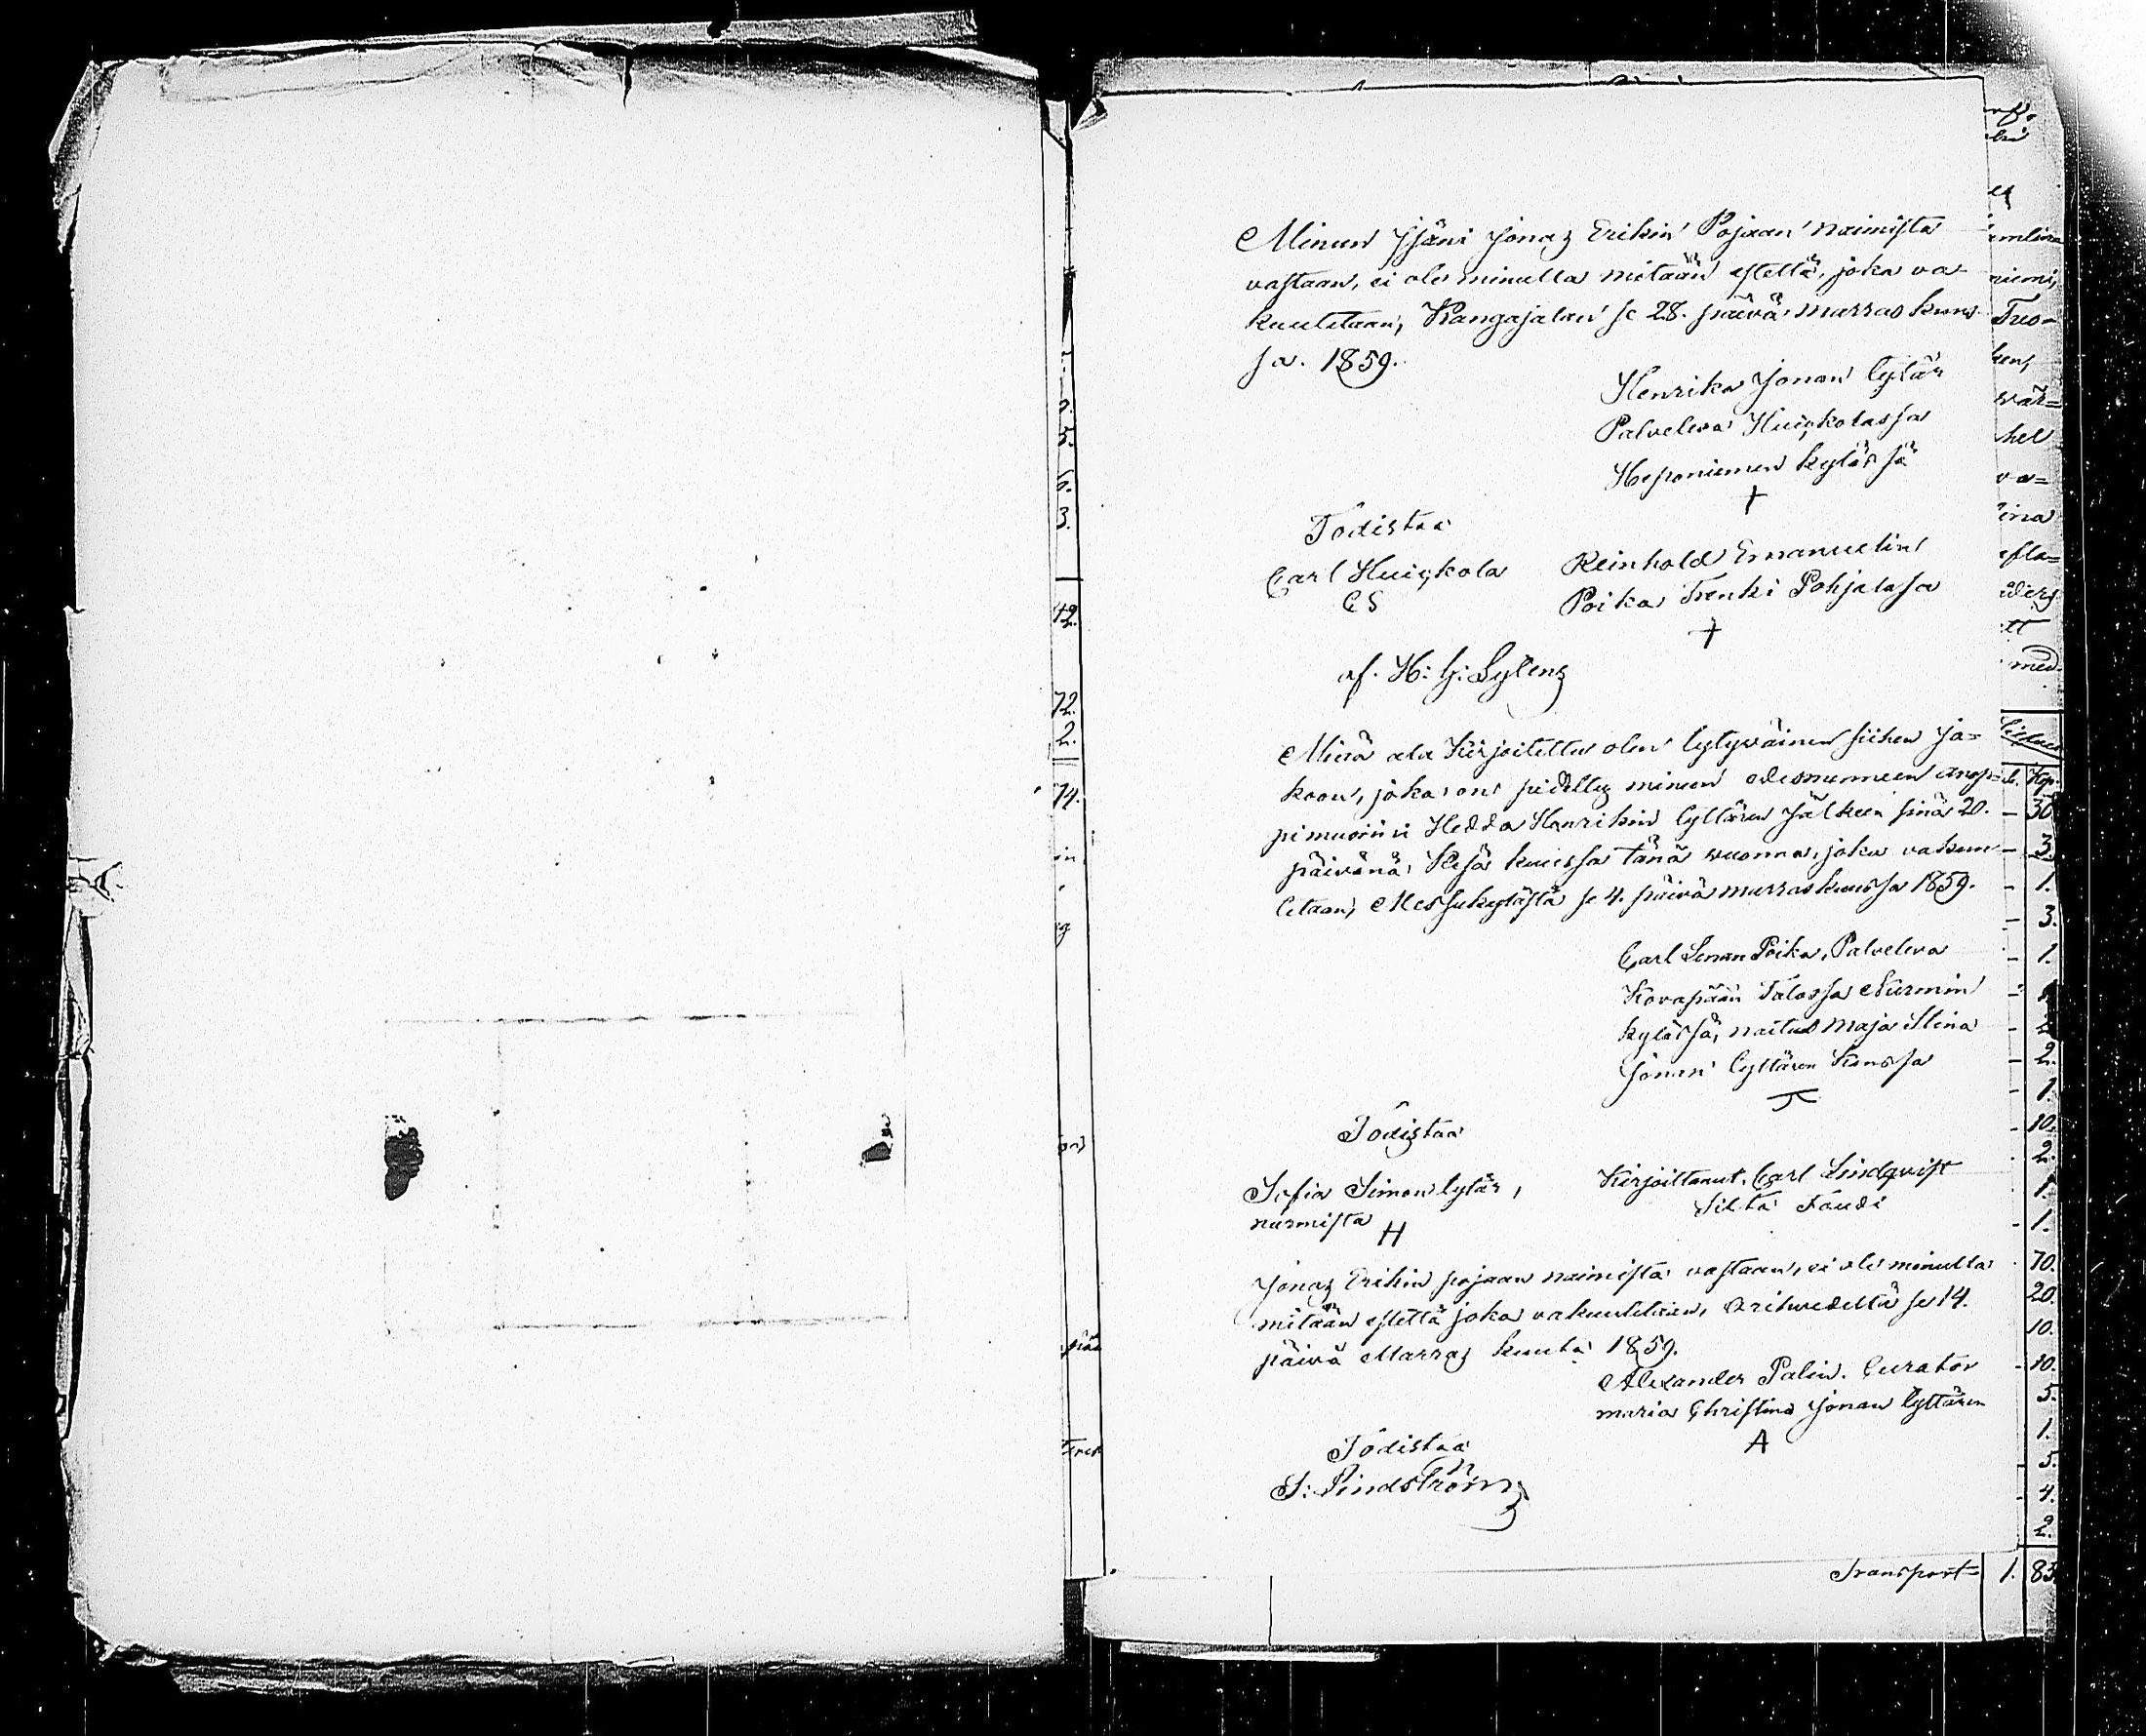 Minun Jsäni Jonas Erikin Pojaan naimista
vastaan, ei ole minulla mitään estettä, joka va-
kuutetaan, Kangasalan se 28. päivä marras kuus-
sa. 1859.
Henrika Jonan tytär
Palveleva Huiskolassa
Heponiemen kylässä
+
Todistaa
Carl Huiskola
C S
Reinhold Emanuelin
Poika Trenki Pohjalasa
+
af. H: G: Sylens
Minä ala Kirjoitettu olen tytyväinen siihen Ja=
koon, joka on pidetty minun edesmenneen anop=
pimuorini Hedda Henrikin tyttären Jälkeen sinä 20.
päivänä Kesä kuussa tänä vuonna, joka vakuu-
tetaan, Messukylästä se 4. päivä marraskuussa 1859.
Carl Simon Poika, Palveleva
Kovapään Talossa Nurmin
kylässä, naitu Maja Stina
Jonan tyttären Kanssa
Todistaa
Sofia Simon tytär,
nurmista H
Kirjoittanut. Carl Lindqvist
Silta Foudi
Jonas Erikin pojaan naimista vastaan, ei ole minulla
mitään estettä joka vakuutetaan, Orihvedeltä se 14.
päivä Marras kuuta 1859.
Alexander Palin. Curator
maria Christina Jonan tyttären
A
Todistaa
S: Lindström
Transport 1. 83